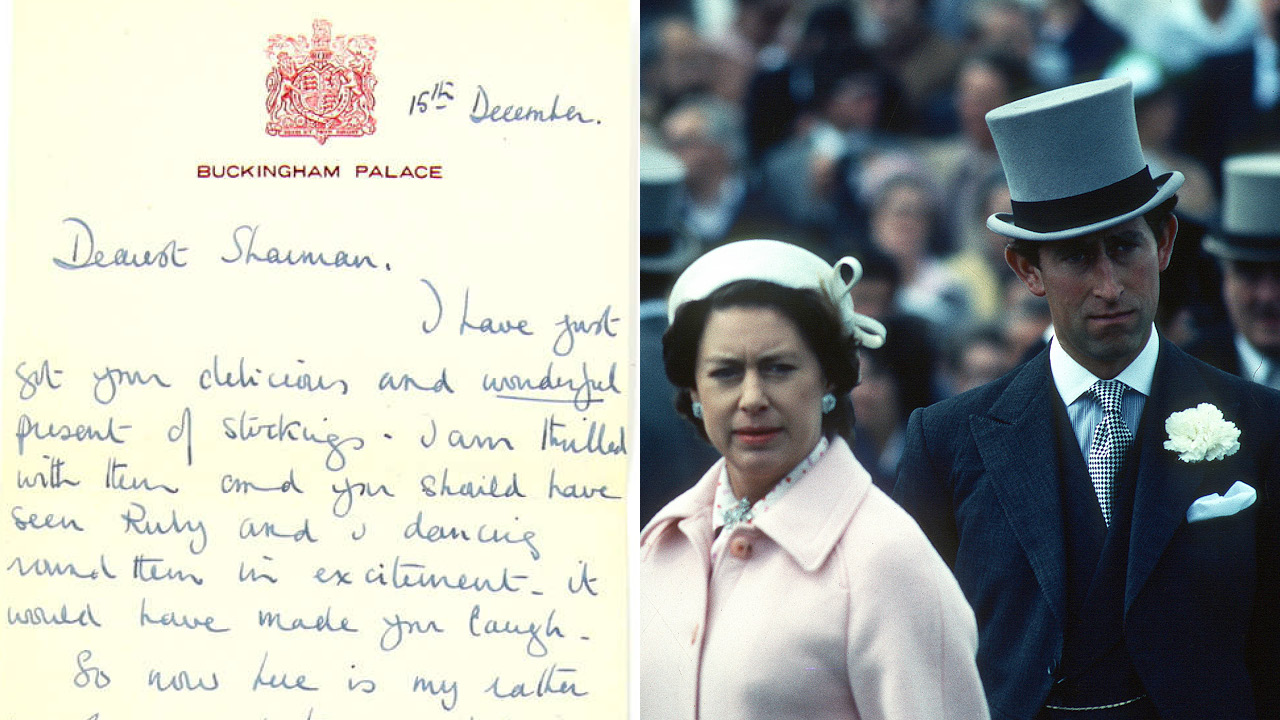 15th December.
BUCKINGHAM PALACE
Dearest Sharman,
I have just
got your delicious and wonderful
present of stockings. I am thrilled
with them and you should have
seen Ruby and I dancing
round them in excitement - it
would have made you laugh.
So now here is my rather